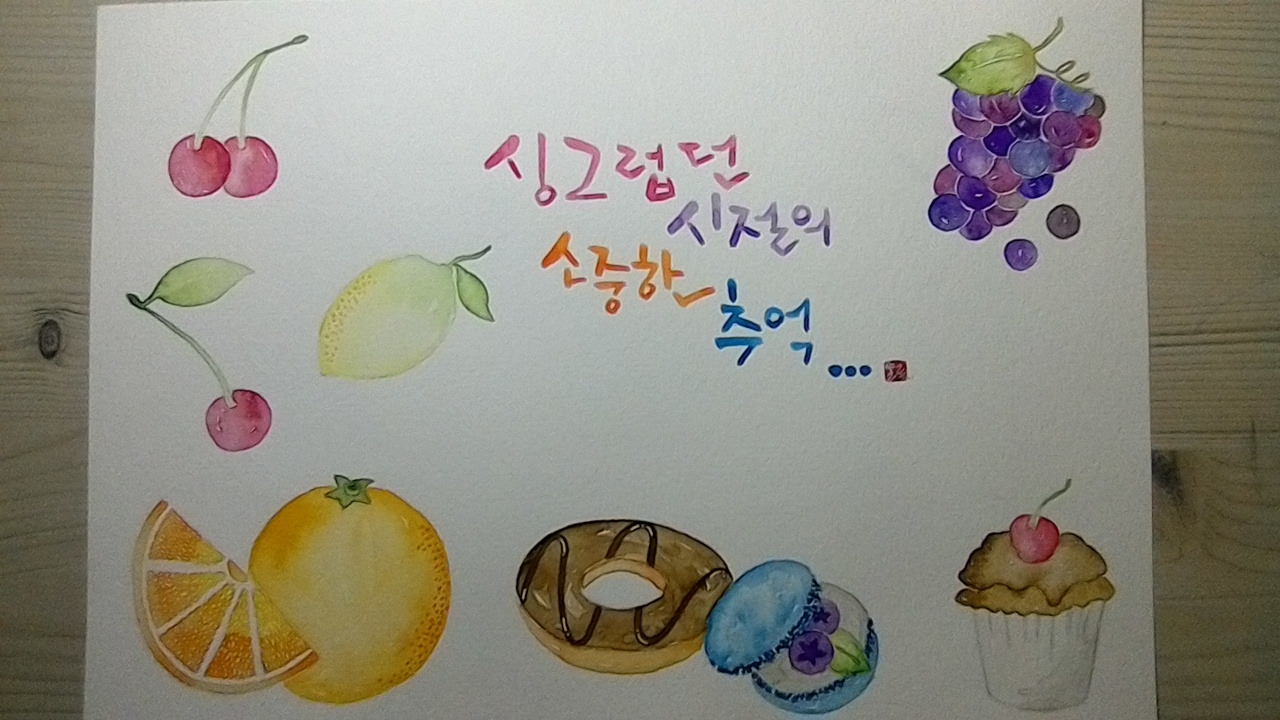 싱그럽던
시절의
소중한
추억...